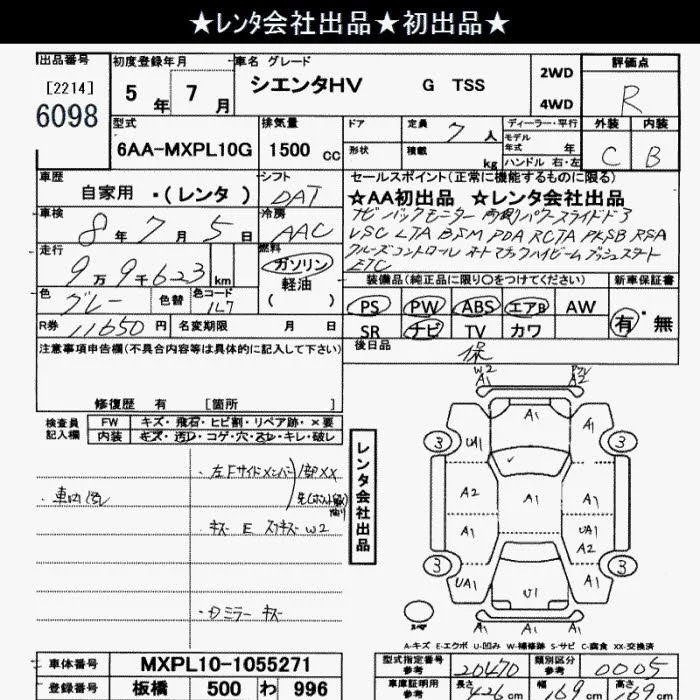 ★レンタ会社出品★初出品★
出品番号 初度登録年月 車名 グレード 評価点
[2214]
6098
5年 7月 シエンタHV G TSS
2WD
4WD
R
型式 排気量 ドア 定員 7人 ディーラー・平行 外装 内装
6AA-MXPL10G 1500 cc
形状 積載 kg
モデル年式 年
ハンドル 右・左
C B
車歴 シフト セールスポイント(正常に機能するものに限る)
自家用・(レンタ) DAT
☆AA初出品 ☆レンタ会社出品
車検 冷房
8年 7月 5日 AAC
ナビ バックモニター 両側パワースライドドア
VSC LTA BSM PDA RCTA PKSB RSA
クルーズコントロール オートマチックハイビーム プッシュスタート
ETC
走行 燃料
9万9千623 km
ガソリン
軽油
( )
装備品(純正品に限り○をつけてください) 新車保証書
色 グレー 色替 色コード 1L7
PS PW ABS エアB AW 有・無
SR ナビ TV カワ
R券 11650円 名変期限 月 日
後日品 保
注意事項申告欄(不具合内容等は具体的に記入して下さい)
修復歴 有 [箇所 ]
検査員記入欄
FW キズ・飛石・ヒビ割・リペア跡・×要
内装 キズ・汚レ・コゲ・穴・スレ・キレ・破レ
・左Fサイドメンバー
部XX
・キズ E スリキズ W2
ミラー キズ
レンタ会社出品
W2
A1 A2
A1
A1
UA1
3 3
A2 A1
A1 UA1
A2
3 3
UA1 A1
U1
A1 A1 A1
スペア
A-キズ E-エクボ U-凹み W-補修跡 S-サビ C-腐食 XX-交換済
車体番号 MXPL10-1055271
登録番号 板橋 500 わ 996
型式指定番号 参考 20470 類別区分 参考 0005
車庫証明用 参考 長さ 426cm 幅 169cm 高さ 169cm